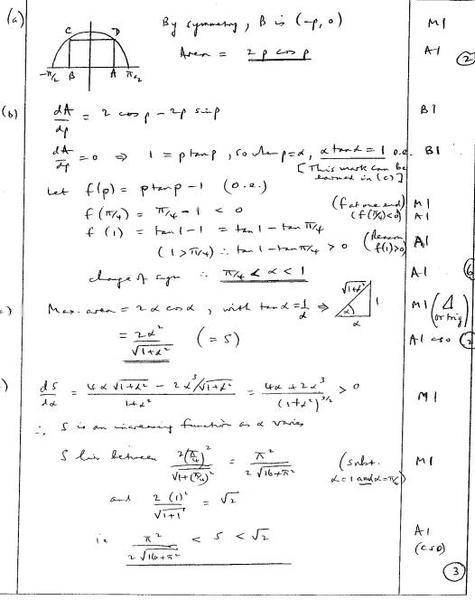 (a) By symmetry, B is (-p, 0) M1
C D
-π/2 B A π/2
Area = 2p cos p A1 (2)
(b) dA/dp = 2 cos p - 2p sin p B1
dA/dp = 0 ⇒ 1 = p tan p, so when p=α, α tan α = 1 o.e. B1
[This mark can be earned in (c)]
Let f(p) = p tan p - 1 (o.e.)
f(π/4) = π/4 - 1 < 0 (f at one end) M1
(f(π/4)<0) A1
f(1) = tan 1 - 1 = tan 1 - tan π/4
(1 > π/4) ∴ tan 1 - tan π/4 > 0 (Reason f(1)>0) A1
change of sign ∴ π/4 < α < 1 A1 (6)
Max. area = 2α cos α, with tan α = 1/α ⇒ √1+α² 1 α α M1 (Δ or trig)
= 2α²/√1+α² (= S) A1 cso (2)
) dS/dα = (4α√1+α² - 2α³/√1+α²)/(1+α²) = (4α + 2α³)/(1+α²)^3/2 > 0 M1
∴ S is an increasing function as α varies
S lies between 2(π/4)²/√1+(π/4)² = π²/(2√16+π²) (subst. α=1 and α=π/4) M1
and 2(1)²/√1+1² = √2
ie π²/(2√16+π²) < S < √2 A1 (cso)
(3)